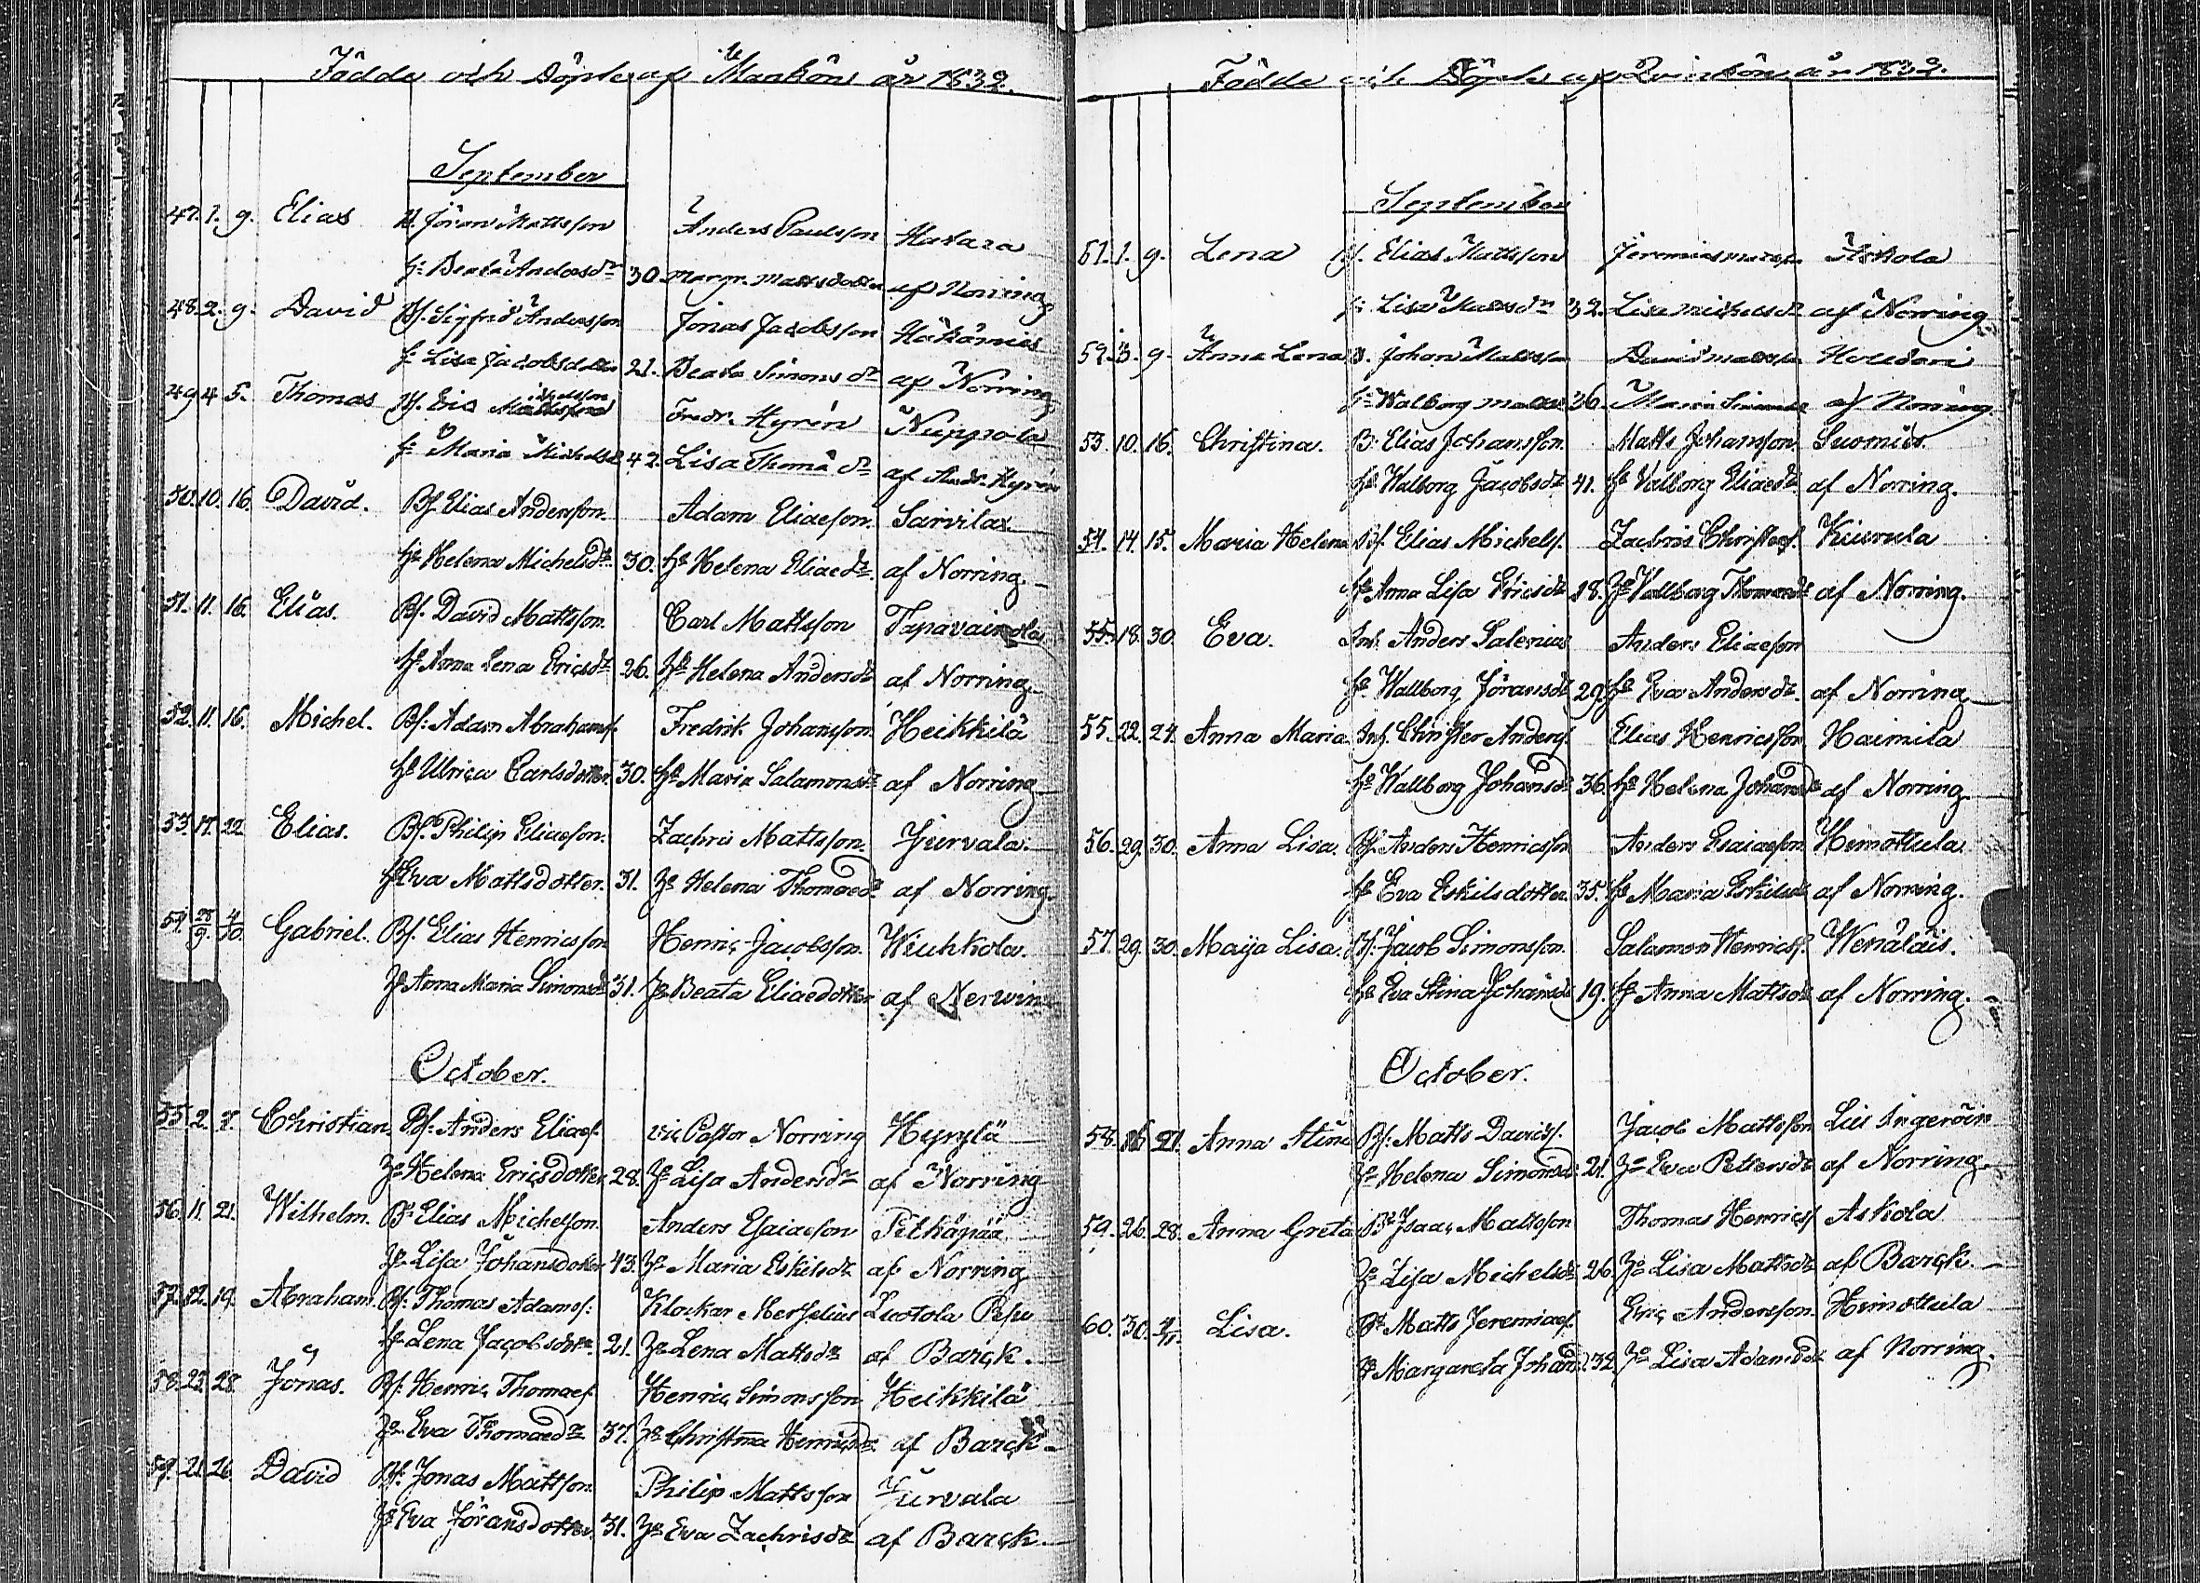 Födde och Döpte af Mankön år 1832.
September
47. 1. 9. Elias B. Jöran Mattsson Anders Paulsson Havara
h: Beata Andersdr 30. Margr. Mattsdotter af Norring
48. 2. 9. David Bf. Sigfrid Andersson Jonas Jacobsson
h: Lisa Jacobsdotter 21. Beata Simonsdr af Norring
49 4 5. Thomas Bf. Eric Fredr. Hyrén Nuppola
h: Maria Michelsd 42. Lisa Thomædr af Fredr. Hyrén
50. 10. 16. David. Bf Elias Anderson. Adam Eliæson. Sarvilax
hu Helena Michelsdr 30. hu Helena Eliædr. af Norring.
51. 11. 16. Elias. Bf. David Mattsson. Carl Mattsson
hu Anna Lena Ericsdr 26. hu Helena Andersdr af Norring.
52. 11. 16. Michel. Bf. Adam Abrahamss. Fredrik Johansson Heikkilä
hu Ulrica Carlsdotter. 30. hu Maria Salamonsdr af Norring
53. 17. 22. Elias. Bf. Philip Eliæson. Zachris Mattsson. Yürvala.
hu Eva Mattsdotter. 31. hu Helena Thomædr af Norring.
54. 28/9. 4/10. Gabriel. Bf. Elias Henricsson Henric Jacobsson. Wiuhkola.
hu Anna Maria Simonsdr 31. hu Beata Eliædotter af
October.
55. 2. 7. Christian. Bf. Anders Eliæs. vic Pastor Norring Hyrylä
hu Helena Ericsdotter 28. hu Lisa Andersdr af Norring
56. 11. 21. Wilhelm. Bf Elias Michelson. Anders Esaiæson Pitkäpää
hu Lisa Johansdotter 43. hu Maria Eskilsdr af Norring
57. 12. 19. Abraham. Bf. Thomas Adams. Klockar Merselius Luotola
hu Lena Jacobsdotr. 21. hu Lena Mattsdr af Barck.
58. 23. 28. Jonas. Bf. Henric Thomæs. Henric Simonsson Heikkilä
hu Eva Thomædr 37. hu Christina Henricsdr. af Barck
59. 21. 26. David Bf. Jonas Mattson Philip Mattsson Yürvala
hu Eva Jöransdotter. 31. hu Eva Zachrisdr af Barck.
Födde och Döpte af Qvinkön år 1832.
September
51. 1. 9. Lena Elias Mattsson Askola
h: Lisa Mattsdr 32. Lisa Michelsdr af Norring
52. 3. 9. Anna Lena Johan Mattsson David Mattsson
hu Walborg 26. Maria af Norring
53. 10. 16. Christina. B. Elias Johansson. Matts Johansson.
hu Walborg Jacobsdr 41. hu Valborg Eliædr. af Norring.
54. 14. 15. Maria Helena Bf. Elias Michels. Zachris Kiurula
hu Anna Lisa Ericsdr 28. hu Vallborg Thomædr af Norring.
55. 18. 30. Eva. Inh. Anders Salenius Anders Eliæson
hu Wallborg Jöransdr 29. hu Eva Andersdr. af Norring
55. 22. 24. Anna Maria Inh. Christer Anders. Elias Henricsson Haimila
hu Wallborg Johansdr 36. hu Helena Johansdr af Norring.
56. 29. 30. Anna Lisa. Bf. Anders Henricson Anders Esaiæson Himottula
hu Eva Eskilsdotter 35. hu Maria Eskilsdr af Norring.
57. 29. 30. Maija Lisa. Bf. Jacob Simonsson. Salamon Henrics. Wenäläis.
hu Eva Stina Johansdr 19. hu Anna Mattsdr af Norring.
October.
58. 16 21. Anna Stina Bf. Matts Davids. Jacob Mattsson
hu Helena Simonsdr 21. hu Eva Petersdr af Norring.
59. 26. 28. Anna Greta Bf Isaac Mattsson Thomas Henrics Askola
hu Lisa Michelsdr 26. hu Lisa Mattsdr af Barck.
60. 30. Lisa. Bf Matts Jeremiæs. Eric Andersson. Himottula
hu Margareta Johansd. 32. hu Lisa Adamsdr af Norring.